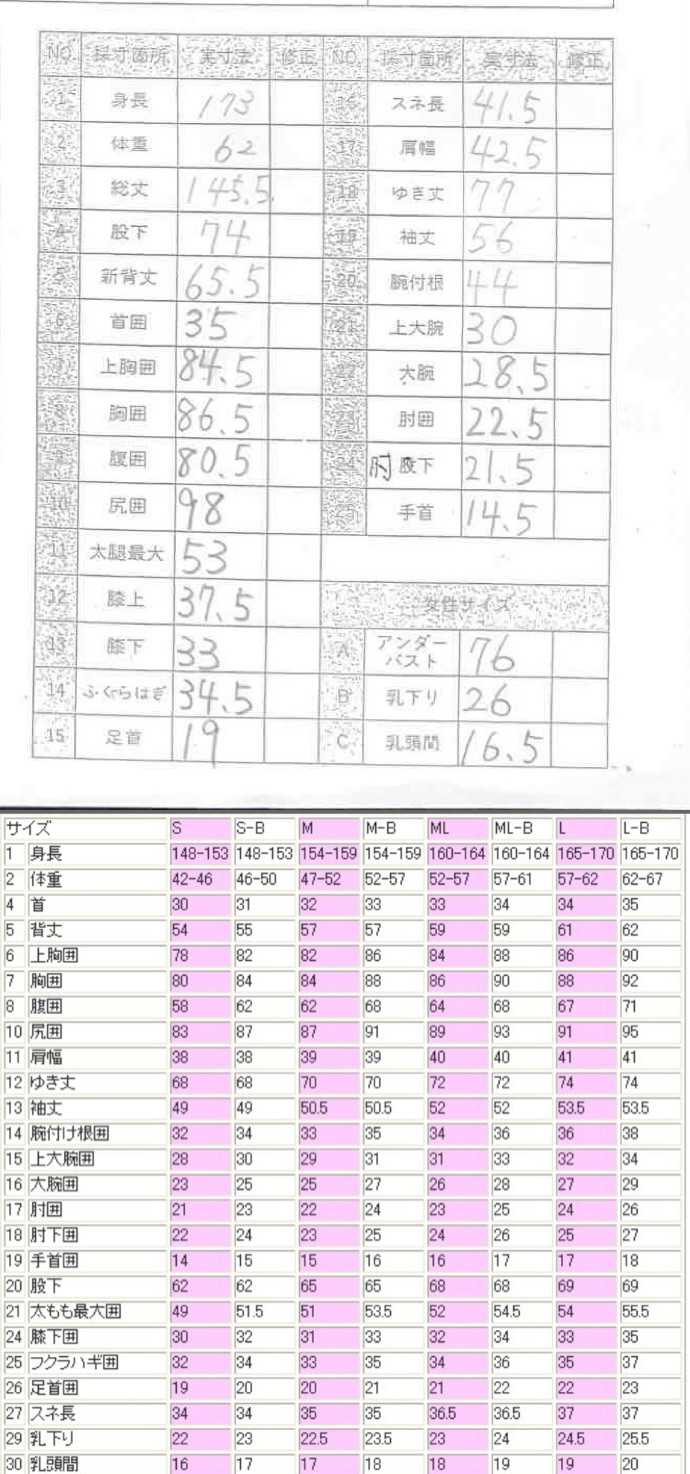 NO. 採寸箇所 実寸法 修正 NO. 採寸箇所 実寸法 修正
1 身長 173 16 スネ長 41.5
2 体重 62 17 肩幅 42.5
3 総丈 145.5 18 ゆき丈 77
4 股下 74 19 袖丈 56
5 新背丈 65.5 20 腕付根 44
6 首囲 35 21 上大腕 30
7 上胸囲 84.5 22 大腕 28.5
8 胸囲 86.5 23 肘囲 22.5
9 腹囲 80.5 24 肘腋下 21.5
10 尻囲 98 25 手首 14.5
11 太腿最大 53
12 膝上 37.5 女性サイズ
13 膝下 33 A アンダーバスト 76
14 ふくらはぎ 34.5 B 乳下り 26
15 足首 19 C 乳頭間 16.5
サイズ S S-B M M-B ML ML-B L L-B
1 身長 148-153 148-153 154-159 154-159 160-164 160-164 165-170 165-170
2 体重 42-46 46-50 47-52 52-57 52-57 57-61 57-62 62-67
4 首 30 31 32 33 33 34 34 35
5 背丈 54 55 57 57 59 59 61 62
6 上胸囲 78 82 82 86 84 88 86 90
7 胸囲 80 84 84 88 86 90 88 92
8 腹囲 58 62 62 68 64 68 67 71
10 尻囲 83 87 87 91 89 93 91 95
11 肩幅 38 38 39 39 40 40 41 41
12 ゆき丈 68 68 70 70 72 72 74 74
13 袖丈 49 49 50.5 50.5 52 52 53.5 53.5
14 腕付け根囲 32 34 33 35 34 36 36 38
15 上大腕囲 28 30 29 31 31 33 32 34
16 大腕囲 23 25 25 27 26 28 27 29
17 肘囲 21 23 22 24 23 25 24 26
18 肘下囲 22 24 23 25 24 26 25 27
19 手首囲 14 15 15 16 16 17 17 18
20 股下 62 62 65 65 68 68 69 69
21 太もも最大囲 49 51.5 51 53.5 52 54.5 54 55.5
24 膝下囲 30 32 31 33 32 34 33 35
25 フクラハギ囲 32 34 33 35 34 36 35 37
26 足首囲 19 20 20 21 21 22 22 23
27 スネ長 34 34 35 35 36.5 36.5 37 37
29 乳下り 22 23 22.5 23.5 23 24 24.5 25.5
30 乳頭間 16 17 17 18 18 19 19 20